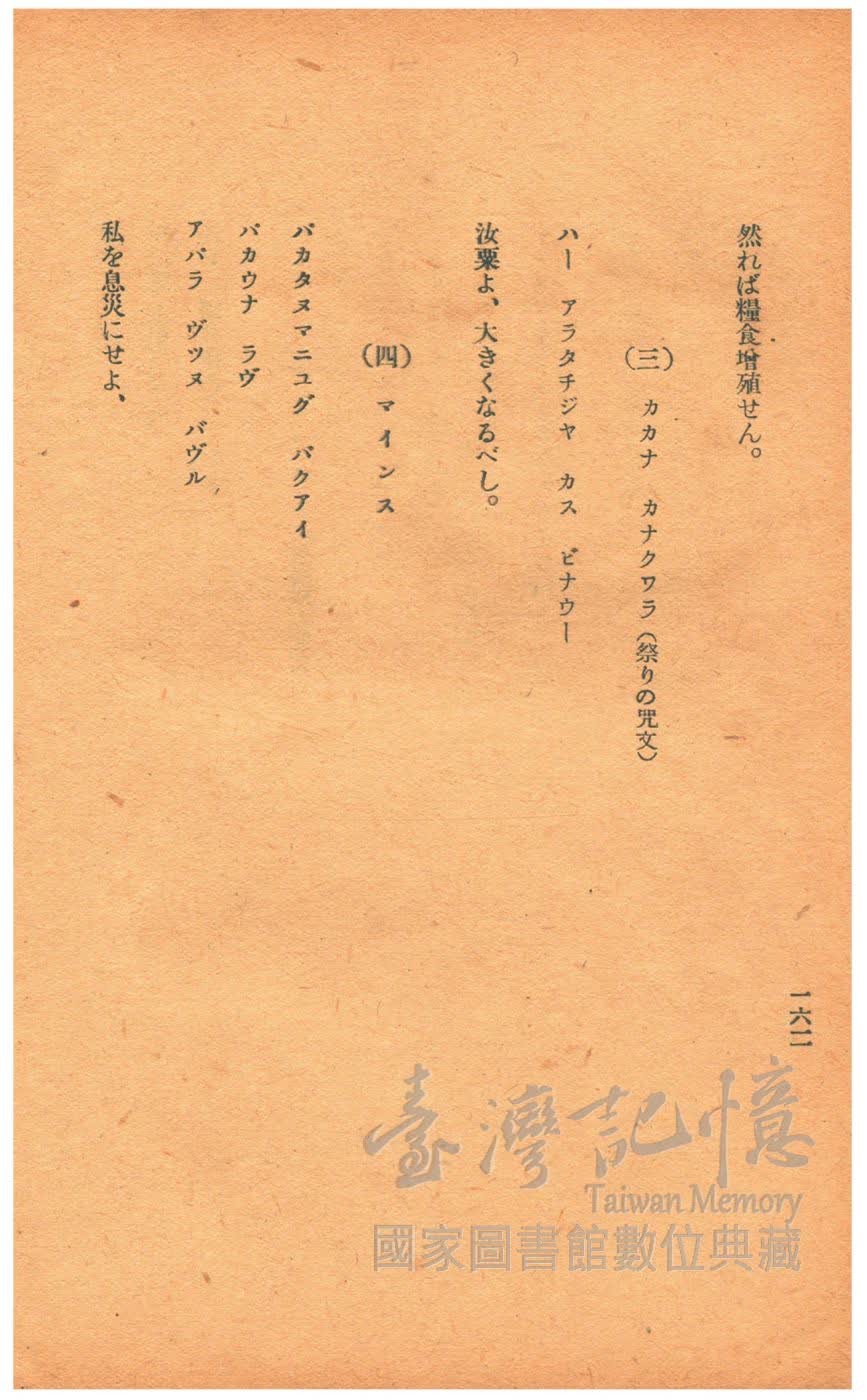 然れば糧食增殖せん。
(三) カカナ カナクワラ(祭りの咒文)
ハー アラタチジヤ カス ビナウー
汝粟よ、大きくなるべし。
(四) マインス
パカタヌマニユグ パクアイ
パカウナ ラヴ
アバラ ヴツヌ バヴル
私を息災にせよ、
一六二
臺灣記憶
Taiwan Memory
國家圖書館數位典藏